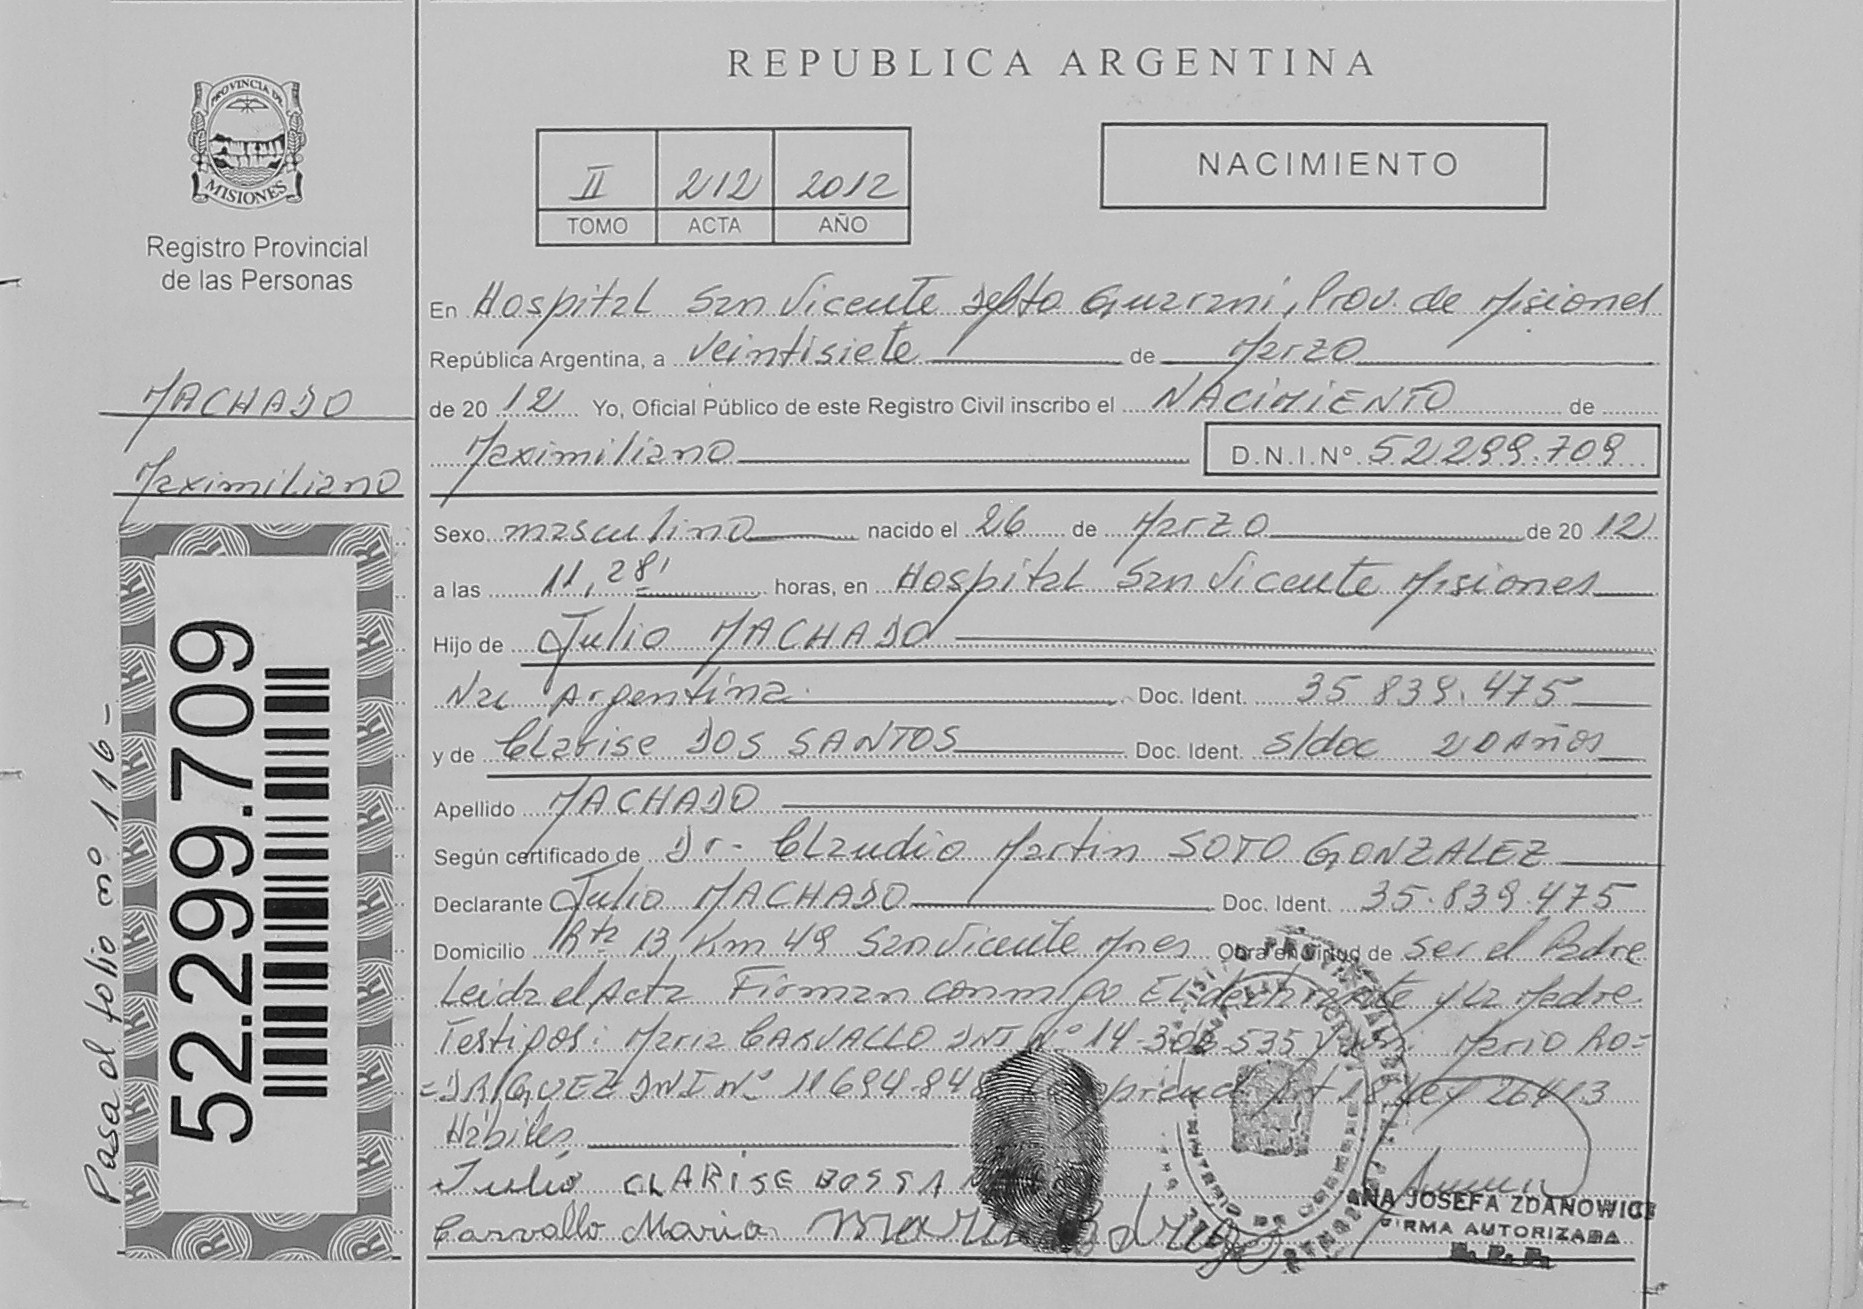 PROVINCIA DE
MISIONES
Registro Provincial
de las Personas
MACHADO
Maximiliano
52.299.709
Pasa al folio nº 116-
REPUBLICA ARGENTINA
II 212 2012
TOMO ACTA AÑO
NACIMIENTO
En Hospital San Vicente Depto Guarani, Prov. de Misiones
República Argentina, a veintisiete de Marzo
de 20 12 Yo, Oficial Público de este Registro Civil inscribo el NACIMIENTO de
Maximiliano D.N.I.Nº 52.299.709
Sexo masculino nacido el 26 de Marzo de 20 12
a las 11,28' horas, en Hospital San Vicente Misiones
Hijo de Julio MACHADO
Nac Argentina Doc. Ident. 35 839.475
y de Clarise DOS SANTOS Doc. Ident. s/doc 20 Años
Apellido MACHADO
Según certificado de Dr. Claudio Martin SOTO GONZALEZ
Declarante Julio MACHADO Doc. Ident. 35.839.475
Domicilio Rta 13 Km 49 San Vicente Mnes Obra en virtud de ser el Padre
Leida el Acta Firman conmigo El declarante y La Madre
Testigos: Maria CARVALLO DNI Nº 14-306-535 Mario RO=
=DRIGUEZ DNI Nº 11694-848 Art 18 Ley 26413
Hábiles
Julio CLARISE DOSSAN
Carvallo Maria
ANA JOSEFA ZDANOWICZ
FIRMA AUTORIZADA
R.P.P.